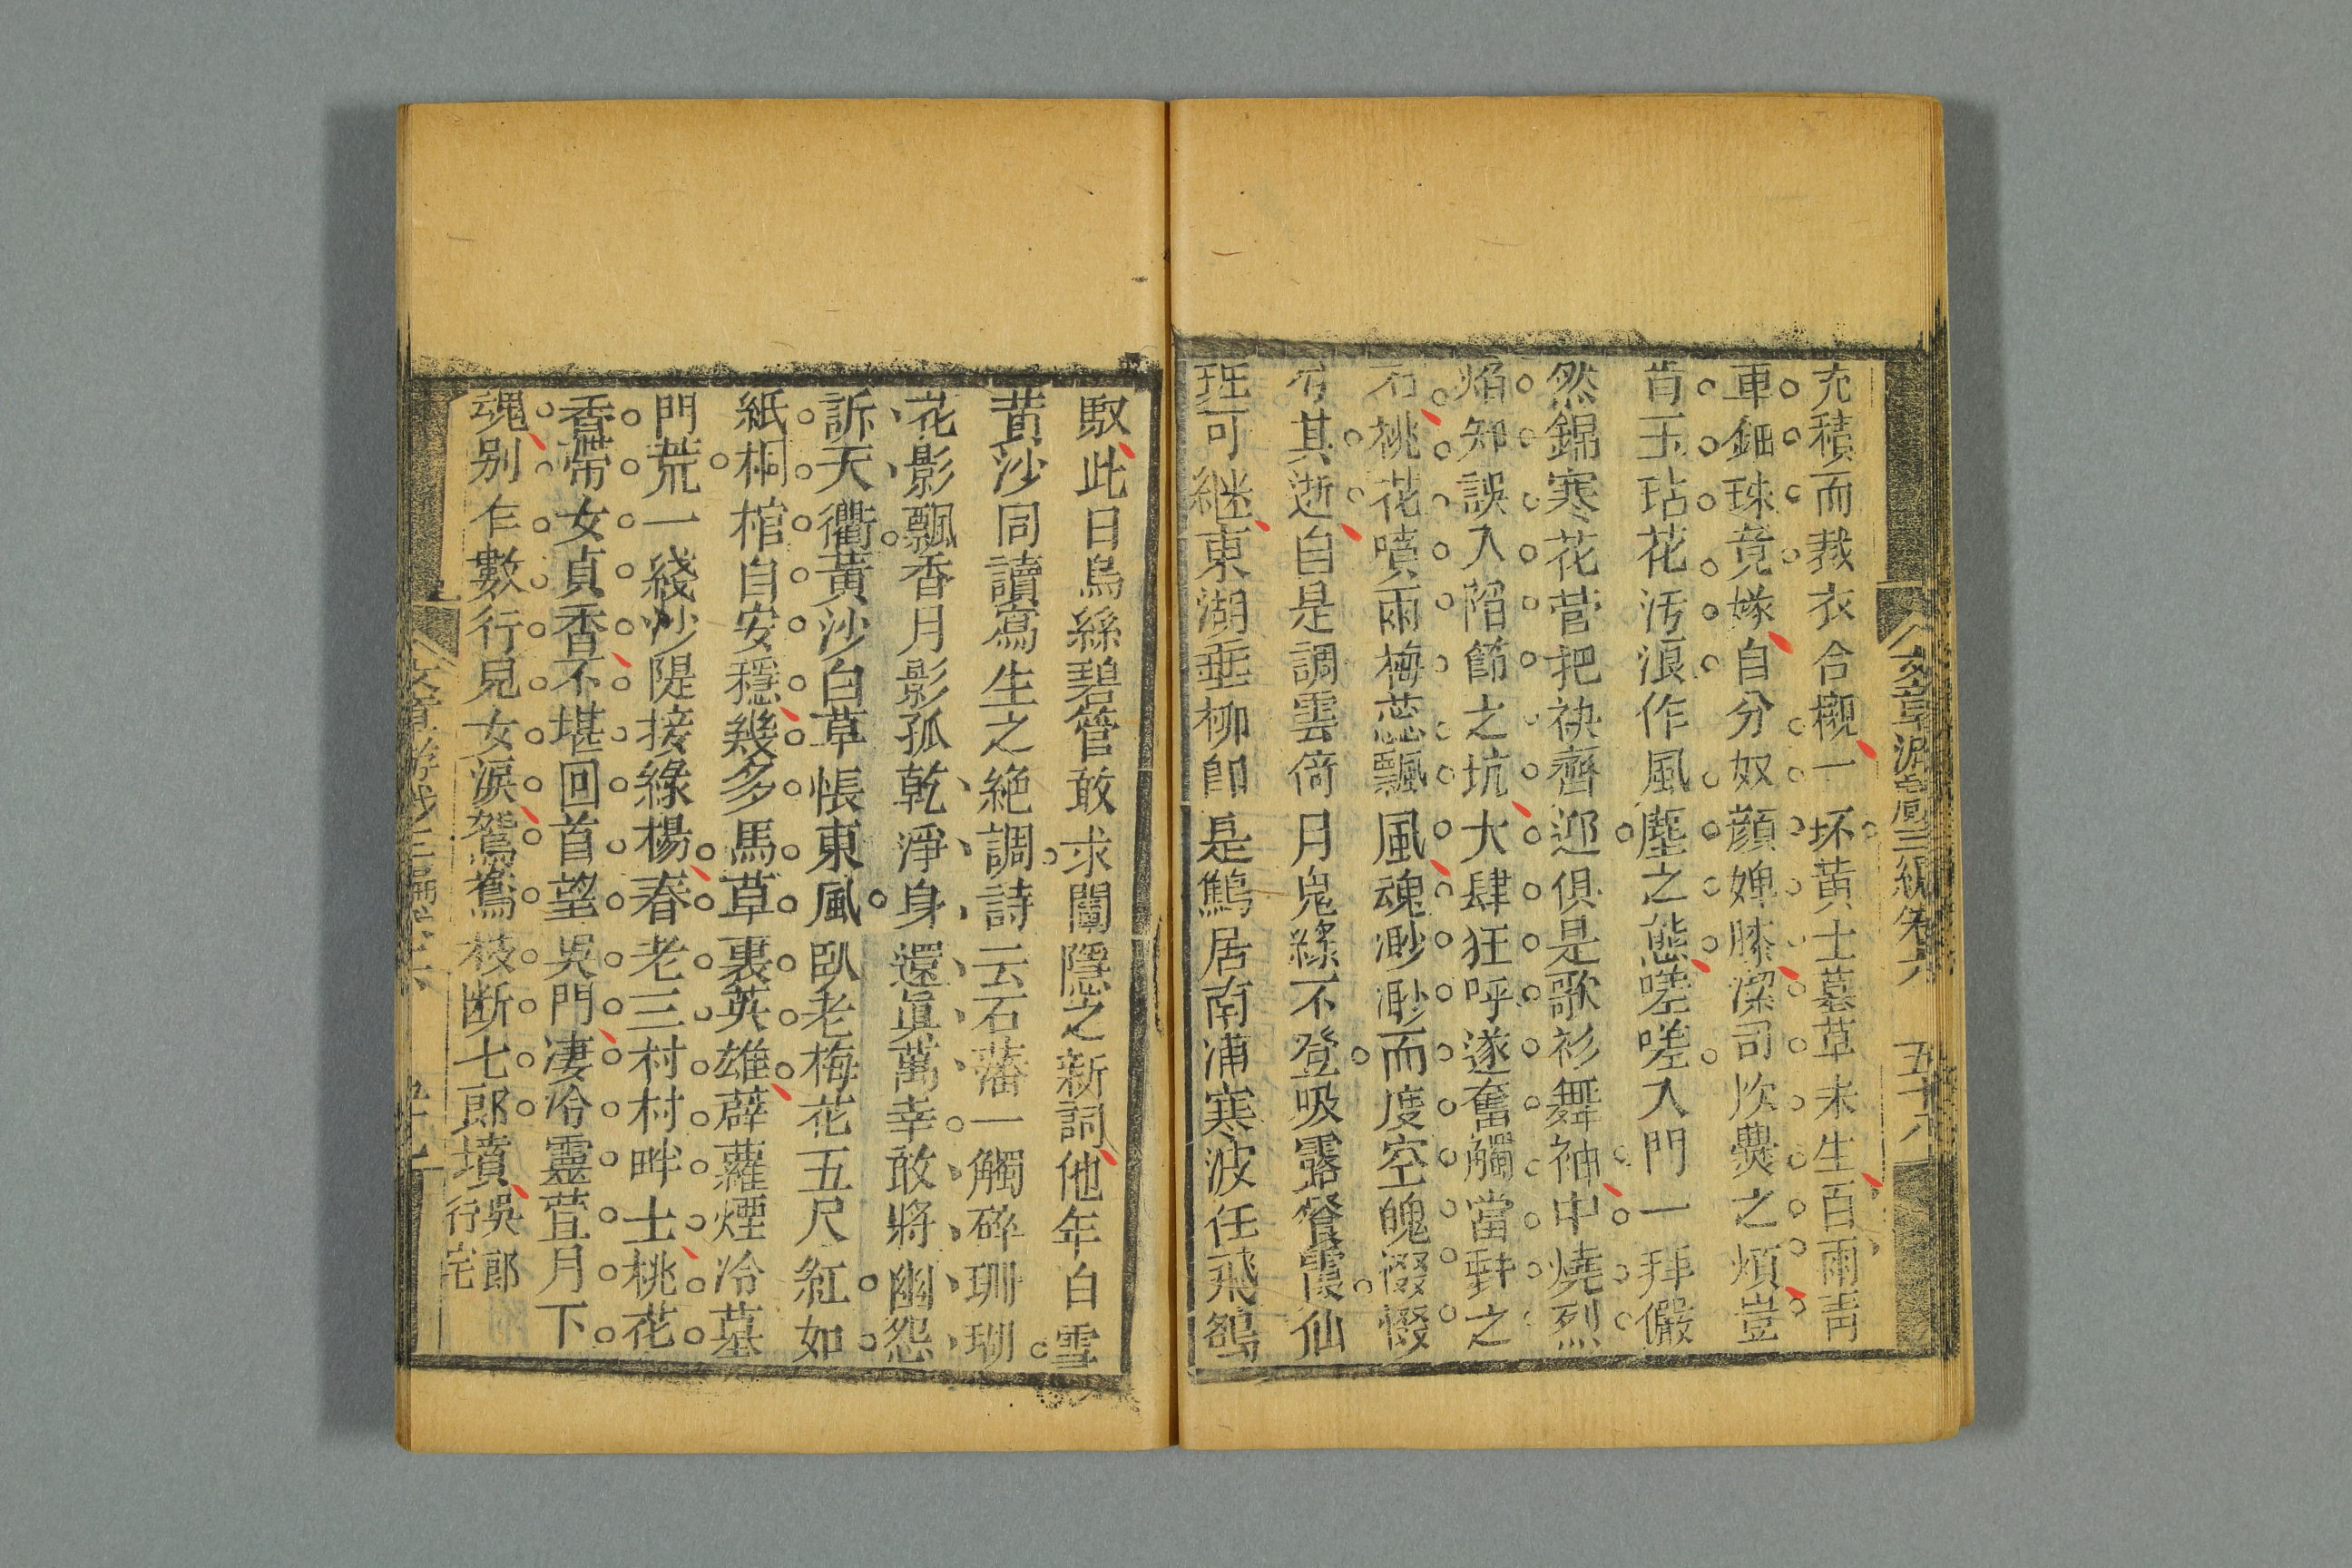 充積而裁衣合櫬一坏黃土墓草未生百雨靑
車鈿珠竟嫁自分奴顔婢膝潔司炊爨之煩豈
肯玉玷花汚浪作風塵之態嗟嗟入門一拜儼
然錦寒花菅把袂齊迎俱是歌衫舞袖中燒烈
焰知誤入陷節之坑大肆狂呼遂奮觸當對之
石桃花噴雨梅蕊飄風魂渺渺而度空魄惙惙
其逝自是調雲倚月鬼緣不登吸露餐霞仙
可継東湖垂柳卽是鷦居南浦寒波任飛鴒
馭此日烏絲碧管敢求闡隱之新詞他年白雪
黃沙同讀寫生之絶調詩云石藩一觸碎珊瑚
花影飄香月影孤乾淨身還眞萬幸敢將幽怨
訴天衢黃沙白草帳東風臥老梅花五尺紅如
紙桐棺自安穏幾多馬草裏英雄薜蘿煙冷墓
門荒一綫沙隄接綠楊春老三村村畔土桃花
香帶女貞香不堪回首望吳門凄冷靈萱月下
魂别乍數行兒女涙鴛鴦枝断七郎墳吳郎行宅